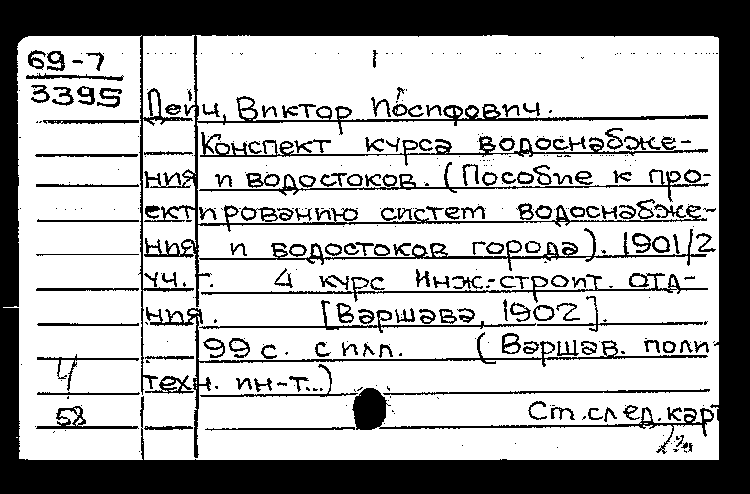 69-7
3395
Дейч, Виктор Иосифович.
Конспект курса водоснабже-
ния и водостоков. (Пособие к про-
ектированию систем водоснабже-
ния и водостоков города). 1901/2
уч. г. 4 курс Инж.-строит. отд-
ния. [Варшава, 1902].
99 с. с илл. (Варшав. поли-
техн. ин-т...)
4
58
Ст. след. карт